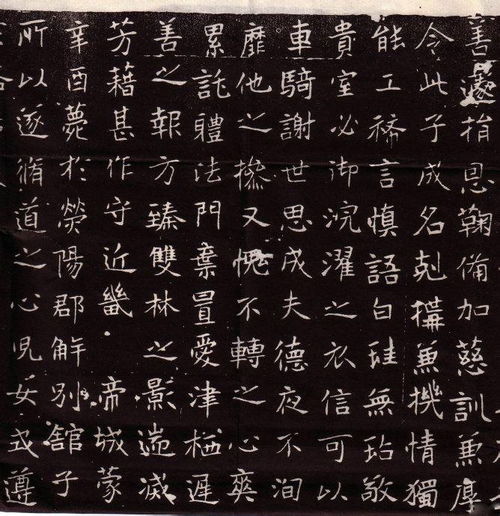 善邊捐恩鞠備加慈訓焦厚
令此子成名剋構兼機情獨
能工稀言慎語白珪無玷敬
貴室必御浣濯之衣信可以
車騎謝世思成夫德夜不洵
靡他之操又愧不轉之心爽
累託體法門棄冒愛津栖遲
善之報方臻雙林之影遄滅
芳藉甚作守近畿帝城蒙
辛酉薨於滎陽郡解別舘子
所以遂脩道之心兒女式遵